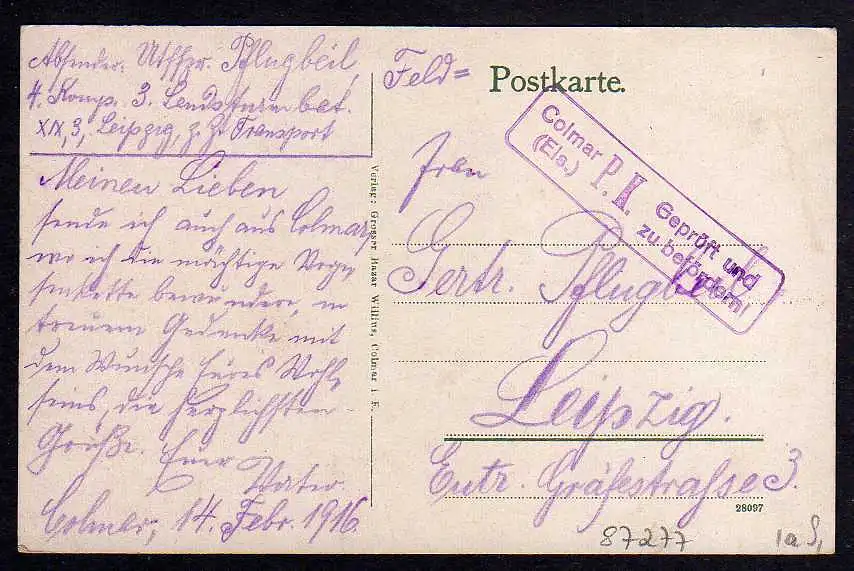 Absender: Utffzr. Pflugbeil,
4. Komp. 3. Landsturmbat.
XIX,3, Leipzig, z. Zt. Transport
Meinen Lieben
sende ich auch aus Colmar,
wo ich die mächtige Voge-
senkette bewundere, in
treuem Gedenken mit
dem Wunsche Eures Wohl-
seins, die herzlichsten
Grüße. Euer
Vater.
Colmar, 14. Febr. 1916.
Verlag: Grosser Bazar Willius, Colmar i. E.
Feld=
Postkarte.
Colmar
(Els.)
P.K.
Geprüft und
zu befördern!
Frau
Gertr. Pflugbeil
Leipzig.
Eutr. Gräfestraße 3.
28097
87277